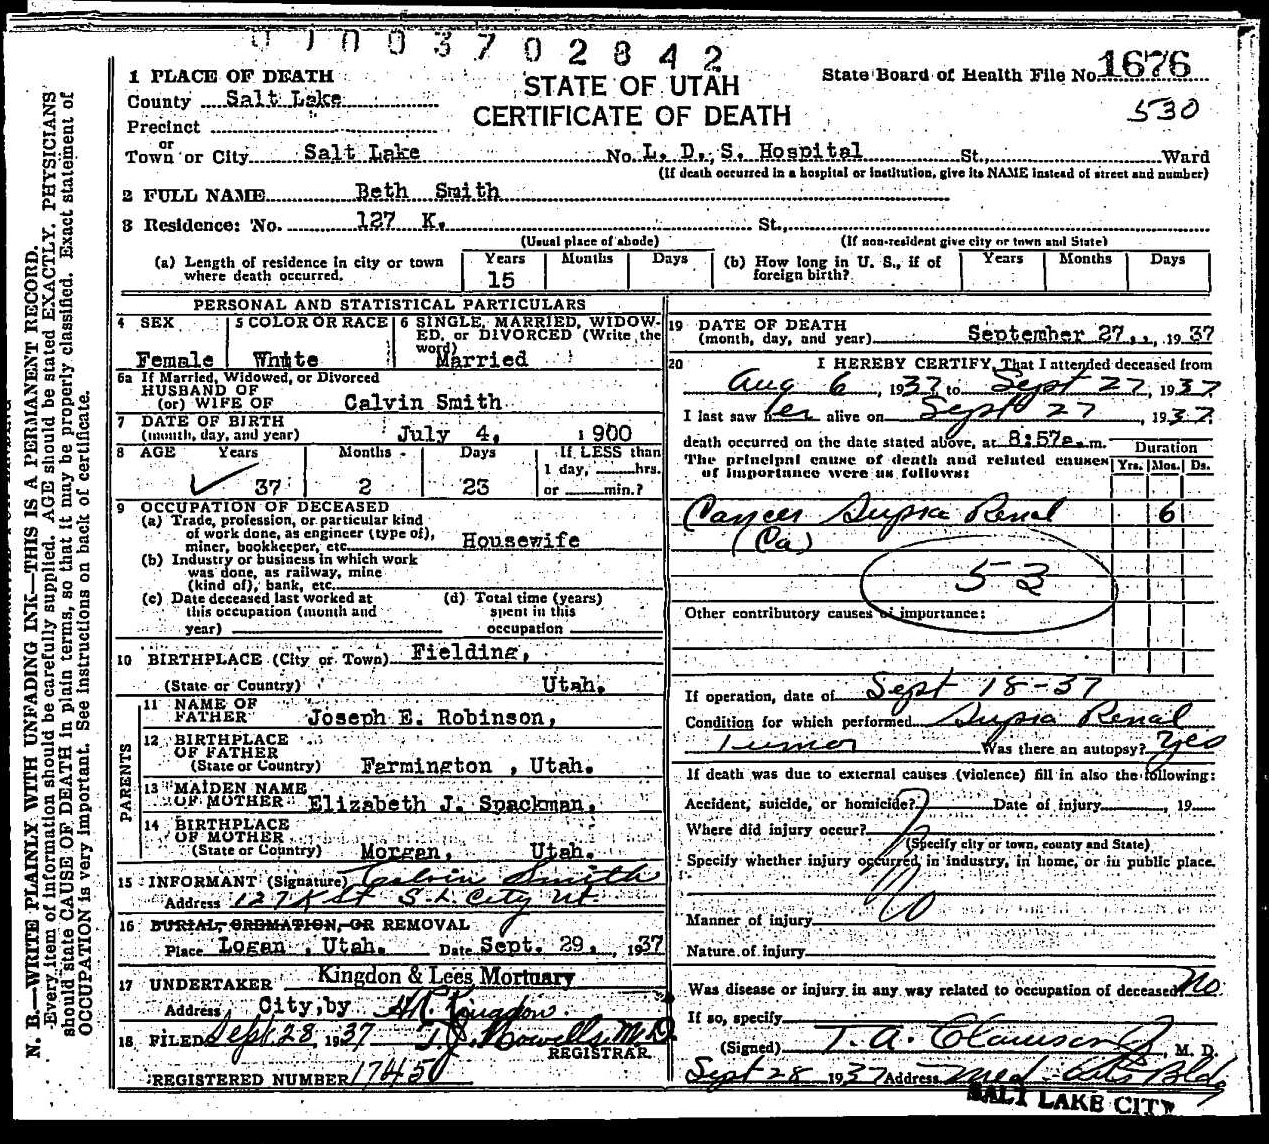 0100370 2842
1 PLACE OF DEATH
STATE OF UTAH
CERTIFICATE OF DEATH
State Board of Health File No. 1676
530
County Salt Lake
Precinct
or
Town or City Salt Lake No. L. D. S. Hospital St., Ward
(If death occurred in a hospital or institution, give its NAME instead of street and number)
2 FULL NAME Beth Smith
3 Residence: No. 127 K. St.,
(Usual place of abode) (If non-resident give city or town and State)
(a) Length of residence in city or town where death occurred. Years 15 Months Days
(b) How long in U. S., if of foreign birth? Years Months Days
PERSONAL AND STATISTICAL PARTICULARS
4 SEX Female
5 COLOR OR RACE White
6 SINGLE, MARRIED, WIDOWED, or DIVORCED (Write the word) Married
6a If Married, Widowed, or Divorced
HUSBAND OF
(or) WIFE OF Calvin Smith
7 DATE OF BIRTH
(month, day, and year) July 4, 1900
8 AGE Years 37 Months 2 Days 23
If LESS than
1 day, hrs.
or min.?
9 OCCUPATION OF DECEASED
(a) Trade, profession, or particular kind
of work done, as engineer (type of),
miner, bookkeeper, etc. Housewife
(b) Industry or business in which work
was done, as railway, mine
(kind of), bank, etc.
(c) Date deceased last worked at
this occupation (month and
year)
(d) Total time (years)
spent in this
occupation
10 BIRTHPLACE (City or Town) Fielding,
(State or Country) Utah.
PARENTS
11 NAME OF
FATHER Joseph E. Robinson,
12 BIRTHPLACE
OF FATHER
(State or Country) Farmington , Utah.
13 MAIDEN NAME
OF MOTHER Elizabeth J. Spackman,
14 BIRTHPLACE
OF MOTHER
(State or Country) Morgan, Utah.
15 INFORMANT (Signature) Calvin Smith
Address 127 K St S. L. City Ut.
16 BURIAL, CREMATION, OR REMOVAL
Place Logan , Utah. Date Sept. 29., 1937
17 UNDERTAKER Kingdon & Lees Mortuary
Address City, by H.R. Kingdon.
18 FILED Sept 28, 1937 T. J. Howells, M.D.
REGISTRAR.
REGISTERED NUMBER 1745
19 DATE OF DEATH
(month, day, and year) September 27,, 1937
20 I HEREBY CERTIFY, That I attended deceased from
Aug 6, 1937 to Sept 27, 1937.
I last saw her alive on Sept 27, 1937.
death occurred on the date stated above, at 8:57a.m.
The principal cause of death and related causes
of importance were as follows:
Duration
Yrs. Mos. Ds.
Cancer Supra Renal 6
(Ca)
53
Other contributory causes of importance:
If operation, date of Sept 18-37
Condition for which performed Supra Renal
Tumor Was there an autopsy? Yes
If death was due to external causes (violence) fill in also the following:
Accident, suicide, or homicide? Date of injury, 19
Where did injury occur?
(Specify city or town, county and State)
Specify whether injury occurred in industry, in home, or in public place.
No
Manner of injury
Nature of injury
Was disease or injury in any way related to occupation of deceased? No
If so, specify
(Signed) T. A. Clawson Jr, M. D.
Sept 28 1937 Address Med-Arts Bldg
SALT LAKE CITY
N. B.—WRITE PLAINLY WITH UNFADING INK—THIS IS A PERMANENT RECORD.
Every item of information should be carefully supplied. AGE should be stated EXACTLY. PHYSICIANS
should state CAUSE OF DEATH in plain terms, so that it may be properly classified. Exact statement of
OCCUPATION is very important. See instructions on back of certificate.